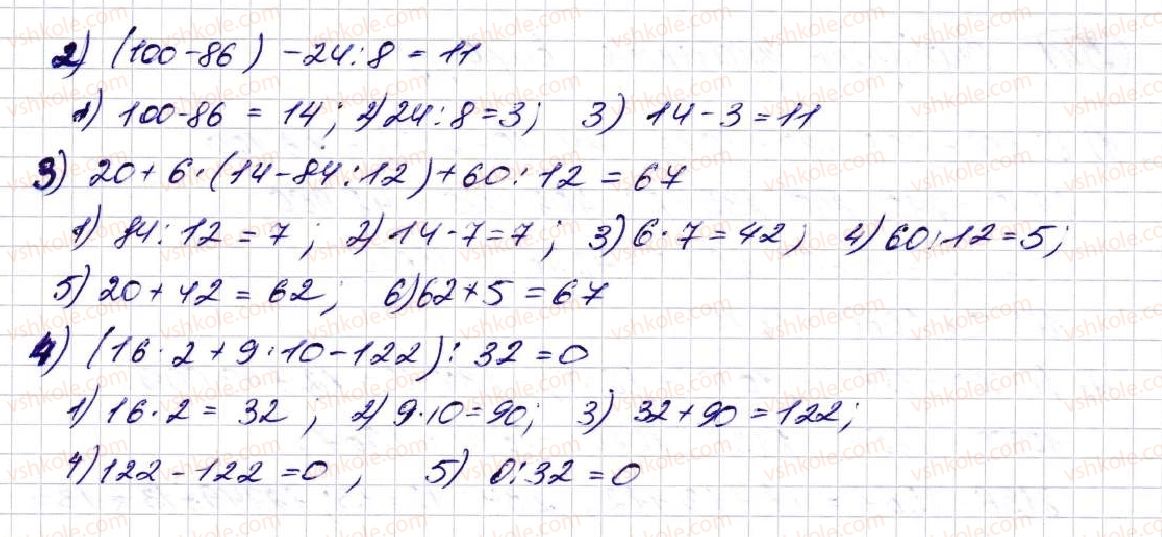 2) (100-86) - 24:8 = 11
1) 100-86 = 14; 2) 24:8=3; 3) 14-3=11
3) 20+6·(14-84:12)+60:12=67
1) 84:12=7; 2) 14-7=7; 3) 6·7=42; 4) 60:12=5;
5) 20+42=62; 6) 62+5=67
4) (16·2+9·10-122):32=0
1) 16·2=32; 2) 9·10=90; 3) 32+90=122;
4) 122-122=0; 5) 0:32=0